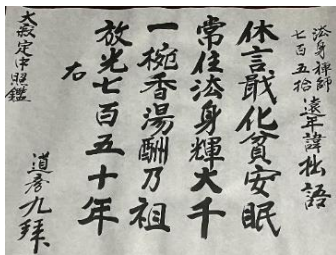 法身禅師
七百五拾遠年諱拙語
休言戢化貧安眠
常住法身輝大千
一椀香湯酬乃祖
放光七百五十年
右
大寂定中照鑑
道彦九拜